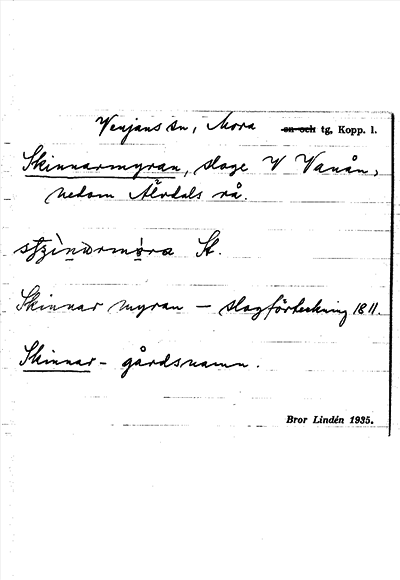 Venjans sn, Mora sn och tg, Kopp. l.
Skinnarmyran, slage V Vanån,
nedom Älvdals rå.
St.
Skinnar myran – slagförteckning 1811.
Skinnar- gårdsnamn.
Bror Lindén 1935.